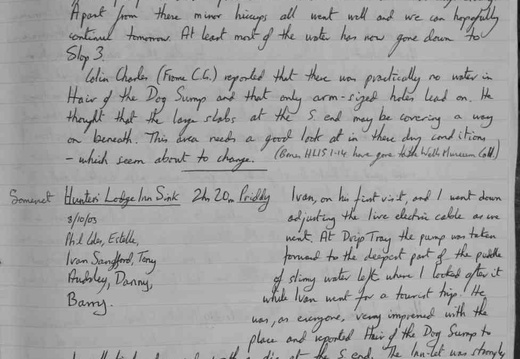 Apart from these minor hiccups all went well and we can hopefully
continue tomorrow. At least most of the water has now gone down to
Stop 3.
Colin Charles (Frome C.G.) reported that there was practically no water in
Hair of the Dog Sump and that only arm-sized holes lead on. He
thought that the large slabs at the S. end may be covering a way
on beneath. This area needs a good look at in these dry conditions
- which seem about to change. (Bones HLIS 1-14 have gone to the Wells Museum Coll)
Somerset Hunters' Lodge Inn Sink 2h 20m Priddy
8/10/03
Phil Coles, Estelle,
Ivan Sandford, Tony
Audsley, Danny,
Barry.
Ivan, on his first visit, and I went down
adjusting the live electric cable as we
went. At Drip Tray the pump was taken
forward to the deepest part of the puddle
of slimy water left where I looked after it
while Ivan went for a tourist trip. He
was, as everyone, very impressed with the
place and reported Hair of the Dog Sump to
at the S. end. The Inn-let was strongly